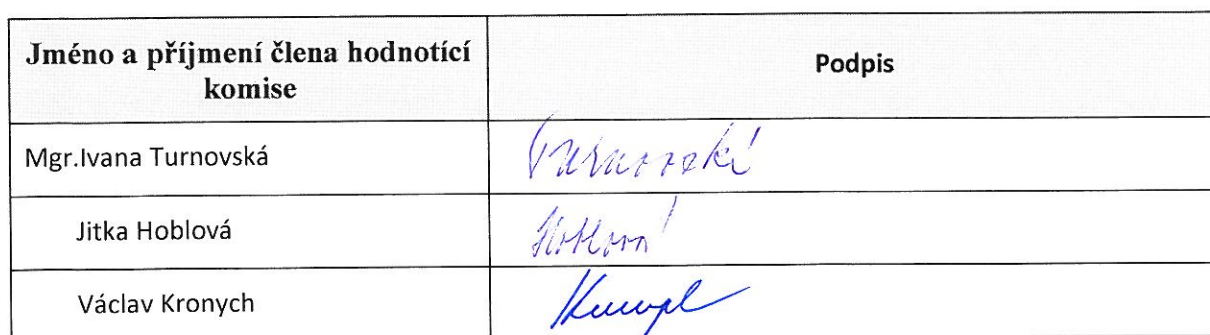 Jméno a příjmení člena hodnotící
komise
Podpis
Mgr.Ivana Turnovská
Turnovská
Jitka Hoblová
Hoblová
Václav Kronych